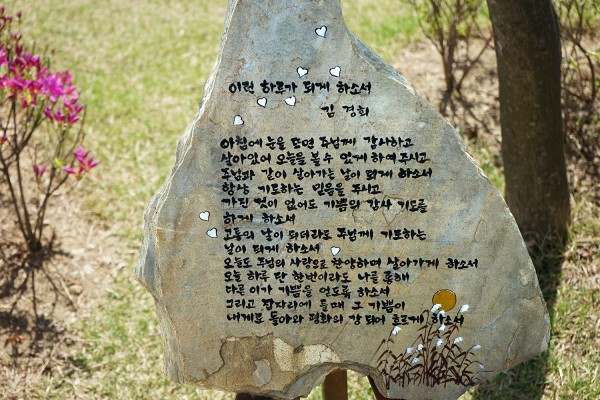 이런 하루가 되게 하소서
김 경희
아침에 눈을 뜨면 주님께 감사하고
살아있어 오늘을 볼 수 있게 하여 주시고
주님과 같이 살아가는 날이 되게 하소서
항상 기도하는 믿음을 주시고
가진 것이 없어도 기쁨의 감사 기도를
하게 하소서
고통의 날이 되더라도 주님께 기도하는
날이 되게 하소서
오늘도 주님의 사랑으로 찬양하며 살아가게 하소서
오늘 하루 단 한번이라도 나를 통해
다른 이가 기쁨을 얻도록 하소서
그리고 잠자리에 들 때 그 기쁨이
내게로 돌아와 평화의 강 되어 흐르게 하소서